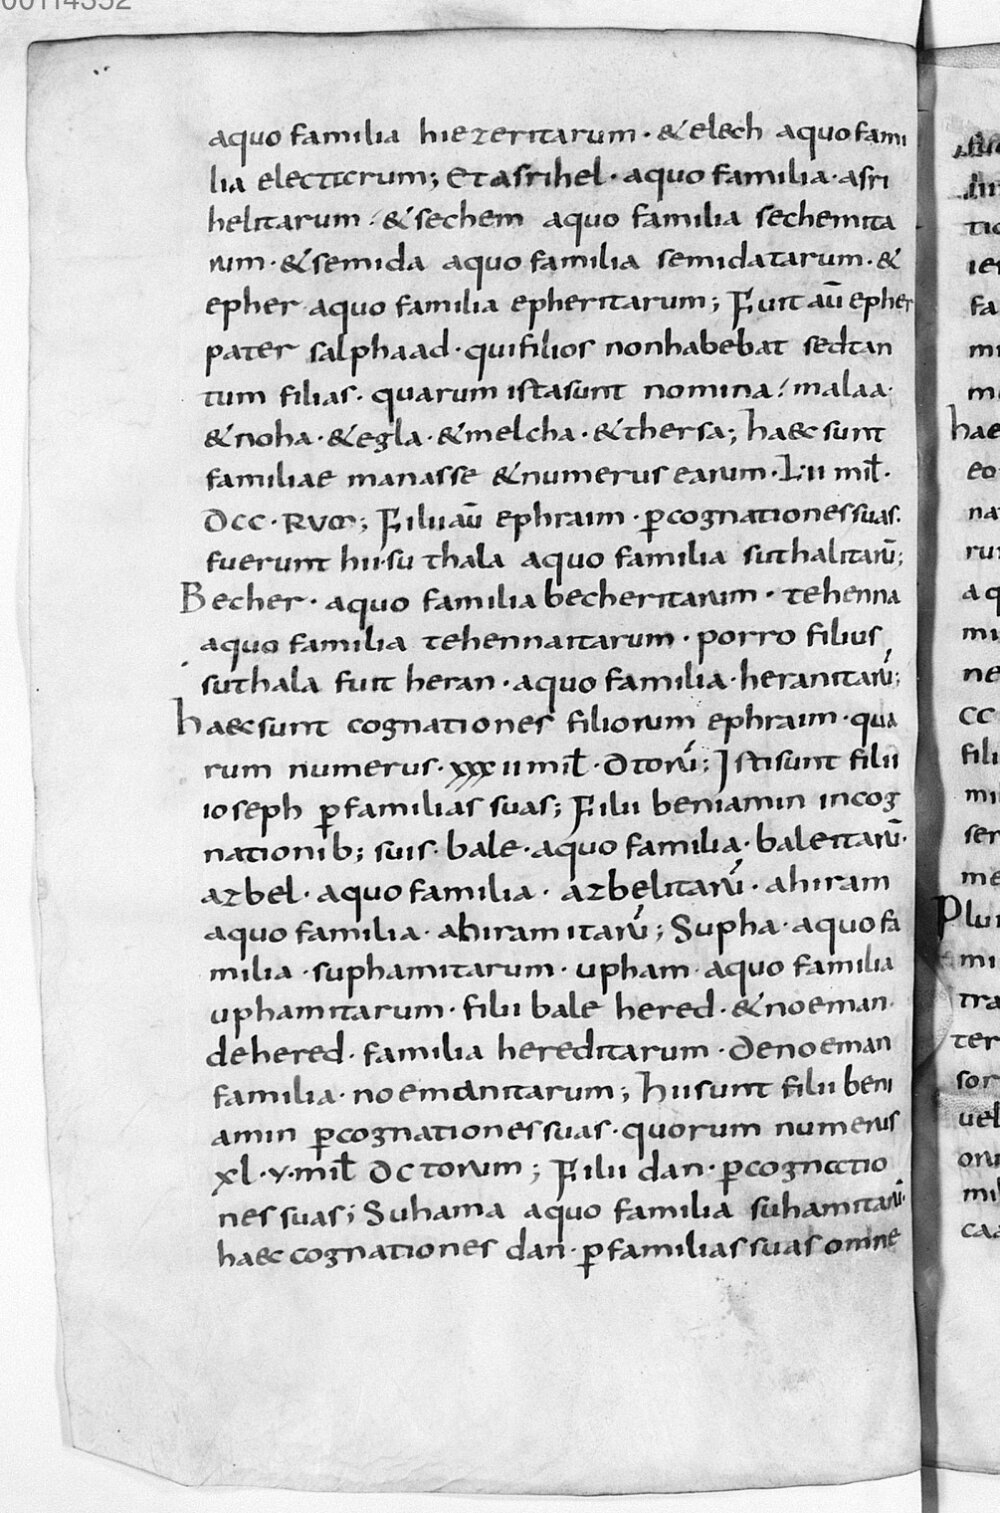 00114352
aquo familia hiezeritarum · & elech aquo fami
lia electicrum; Et asrihel · aquo familia · asri
helitarum · & sechem aquo familia sechemita
rum · & semida aquo familia semidatarum · &
epher aquo familia epheritarum; Fuit aū epher
pater salphaad · qui filios non habebat sed tan
tum filias · quarum ista sunt nomina · malaa ·
& noha · & egla · & melcha · & thersa; haec sunt
familiae manasse & numerus earum · LII mił ·
DCC · ; Filii aū ephraim · ꝑ cognationes suas ·
fuerunt hii · su thala aquo familia suthalitarū;
Becher · aquo familia becheritarum · tehenna
aquo familia tehennaitarum · porro filius
suthala fuit heran · aquo familia · heranitarū;
haec sunt cognationes filiorum ephraim · qua
rum numerus · xxxii mił · D torū; Isti sunt filii
ioseph ꝑ familias suas; Filii beniamin in cog
nationib; suis · bale · aquo familia · baleitarū ·
azbel · aquo familia · azbelitarū · ahiram
aquo familia · ahiramitarū; Supha · aquo fa
milia · suphamitarum · upham · aquo familia
uphamitarum · filii bale hered · & noeman ·
de hered · familia hereditarum · de noeman
familia · noemanitarum; hii sunt filii beni
amin ꝑ cognationes suas · quorum numerus
xl · v · mił DC torum; Filii dan · ꝑ cognatio
nes suas; Suhama aquo familia suhamitarū ·
haec cognationes dan · ꝑ familias suas omne